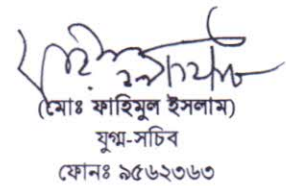 (মোঃ ফাহিমুল ইসলাম)
যুগ্ম-সচিব
ফোনঃ ৯৫৬২৩৬৩